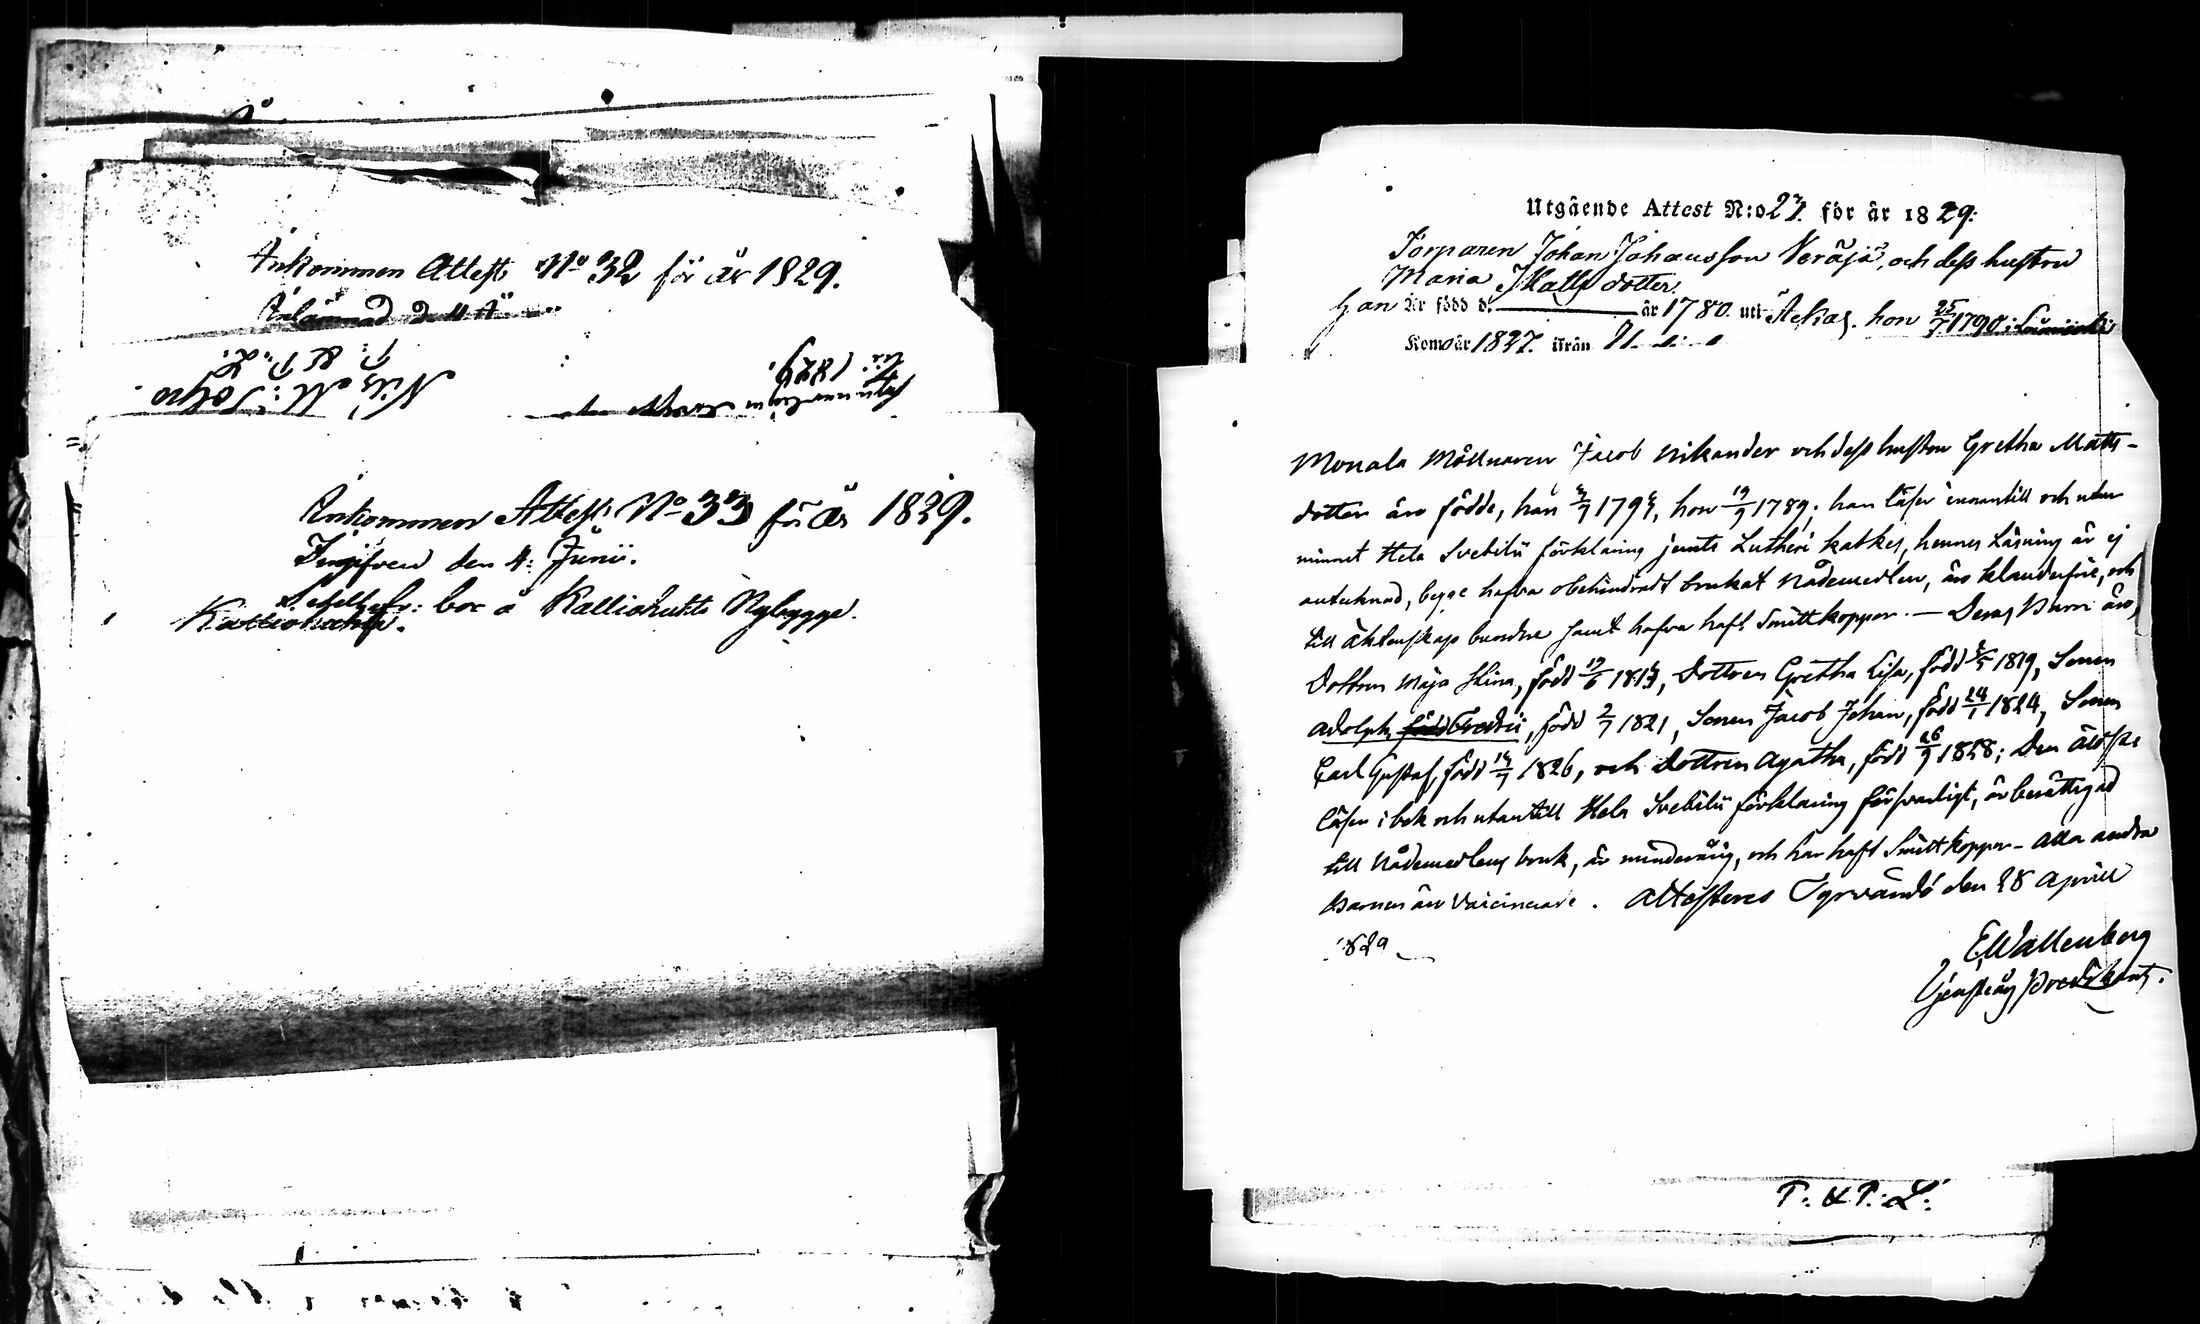 Ankommen Attest No 32 för år 1829.
Inlämnad d. 4
Nils M: Tolpo
P: & P: L.
1829.
Ankommen Attest No 33 för år 1829.
Ingifven den 4: Junii.
bor å Kalliohuhta Nybygge.
Kalliohuhta.
Utgående Attest N:o 27. för år 1829.
Torparen Johan Johansson Veräjä, och dess hustru
Maria Matts dotter.
Han är född d. år 1780. uti Ackas. hon 25/7 1790 i
Kom år 1827. ifrån
Monala Möllnaren Jacob Nikander och dess hustru Gretha Matts-
dotter äro födde, han 1794, hon 19/9 1789; han läser innantill och utur
minnet Hela Svebilii förklaring jemte Lutheri katkes, hennes Läsning är ej
antecknad, begge hafva obehindradt brukat Nådemedlen, äro klanderfrie, och
till äktenskap bundne samt hafva haft Smittkoppor. — Deras Barn äro,
Dottren Maja Stina, född 19/6 1813, Dottren Gretha Lisa, född 1819, Sonen
Adolph född Fredric, född 2/7 1821, Sonen Jacob Johan, född 24/1 1824, Sonen
Carl Gustaf, född 14/7 1826, och Dottren Agatha, född 26/9 1828; Den äldsta
läser i bok och utantill Hela Svebilii förklaring försvarligt, är berättigad
till Nådemedlens bruk, är minderårig, och har haft Smittkoppor – Alla andra
Barnen äro Vaccinerade. Attesteras Tyrvändö den 28 Aprill
1829
E Wallenberg
Tjenstg Predikant.
P: & P: L: